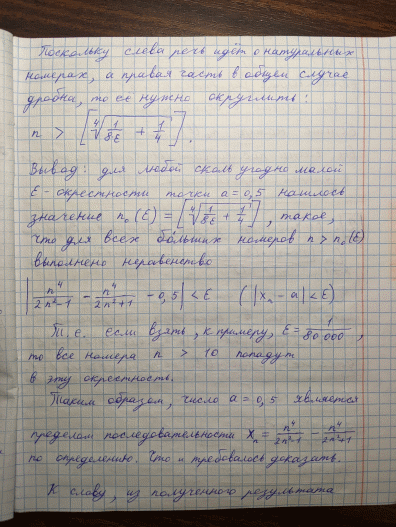 Поскольку слева речь идёт о натуральных
номерах, а правая часть в общем случае
дробна, то её нужно округлить:
n > [⁴√(1/8ε + 1/4)].
Вывод: для любой сколь угодно малой
ε-окрестности точки a = 0,5 нашлось
значение n₀(ε) = [⁴√(1/8ε + 1/4)], такое,
что для всех бо́льших номеров n > n₀(ε)
выполнено неравенство
|n⁴/(2n²-1) - n⁴/(2n²+1) - 0,5| < ε (|xₙ - a| < ε)
Т.е. если взять, к примеру, ε = 1/80 000,
то все номера n > 10 попадут
в эту окрестность.
Таким образом, число a = 0,5 является
пределом последовательности xₙ = n⁴/(2n²-1) - n⁴/(2n²+1)
по определению. Что и требовалось доказать.
К слову, из полученного результата